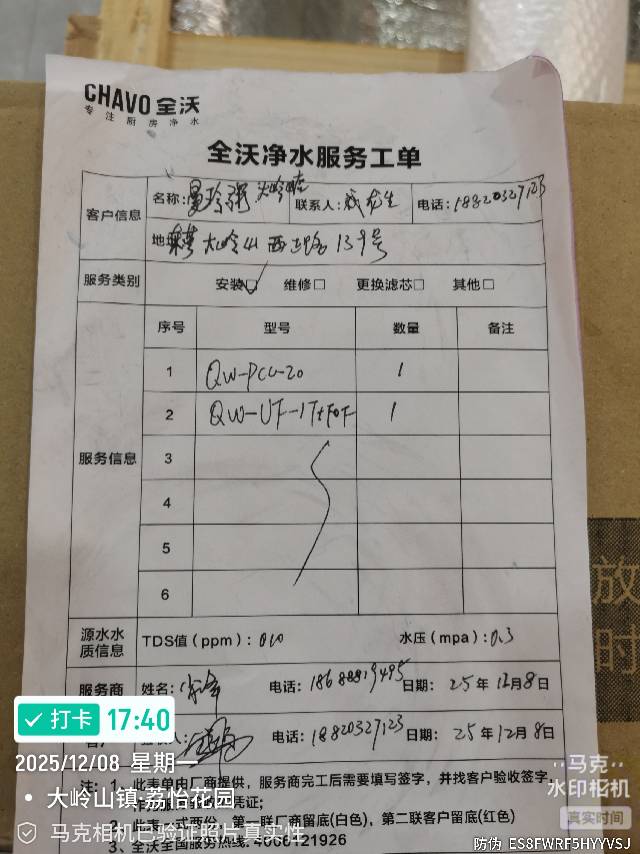 CHAVO 全沃
专注厨房净水
全沃净水服务工单
客户信息
名称: 联系人: 电话: 18820327123
地址: 大岭山西正路139号
服务类别 安装☑ 维修□ 更换滤芯□ 其他□
服务信息
序号 型号 数量 备注
1 QW-PCU-20 1
2 QW-UF-1T+FOF 1
3
4
5
6
源水水质信息 TDS值(ppm): 010 水压(mpa): 0.3
服务商 姓名: 电话: 18688819495 日期: 25年12月8日
电话: 18820327123 日期: 25年12月8日
注: 1、此表单由厂商提供，服务商完工后需要填写签字，并找客户验收签字，
凭证;
2、此表一式两份，第一联厂商留底(白色)，第二联客户留底(红色)
3、全沃全国服务热线: 4008121926
放
时
打卡 17:40
2025/12/08 星期一
大岭山镇·荔怡花园
马克相机已验证照片真实性
马克
水印相机
真实时间
防伪 ES8FWRF5HYYVSJ